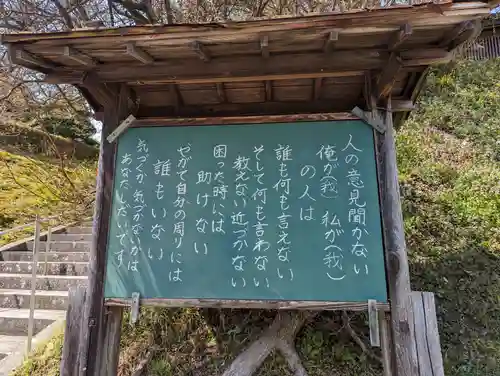 人の意見聞かない
俺が(我) 私が(我)
の人は
誰も何も言えない
そして何も言わない
教えない近づかない
困った時には
助けない
やがて自分の周りには
誰もいない
気づくか気づかないかは
あなたしだいです